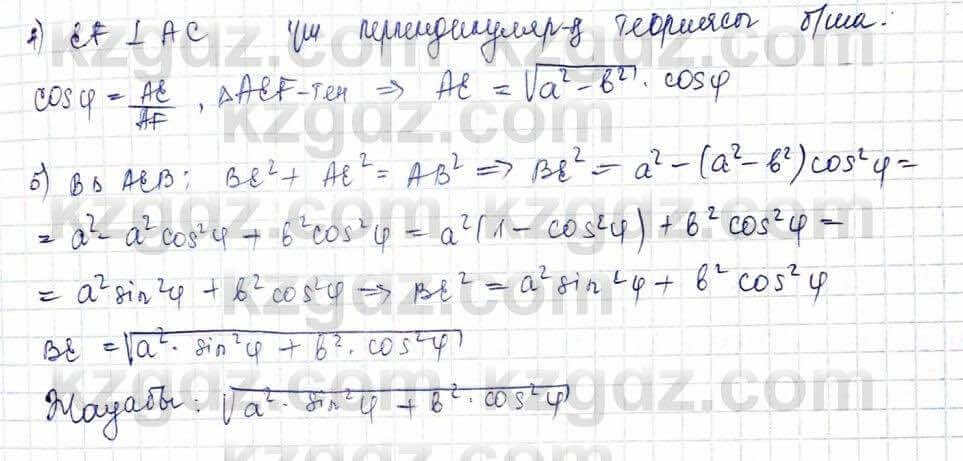 4) EF ⊥ AC үш перпендикуляр-р теориясы б/ша:
cosφ = AE/AF , △AEF-тен ⇒ AE = √(a² - b²) · cosφ
5) B△ AEB: BE² + AE² = AB² ⇒ BE² = a² - (a² - b²)cos²φ =
= a² - a²cos²φ + b²cos²φ = a²(1 - cos²φ) + b²cos²φ =
= a² sin²φ + b² cos²φ ⇒ BE² = a² sin²φ + b² cos²φ
BE = √(a² · sin²φ + b² · cos²φ)
Жауабы: √(a² · sin²φ + b² · cos²φ)
kzgdz.com
kzgdz.com
kzgdz.com
kzgdz.com